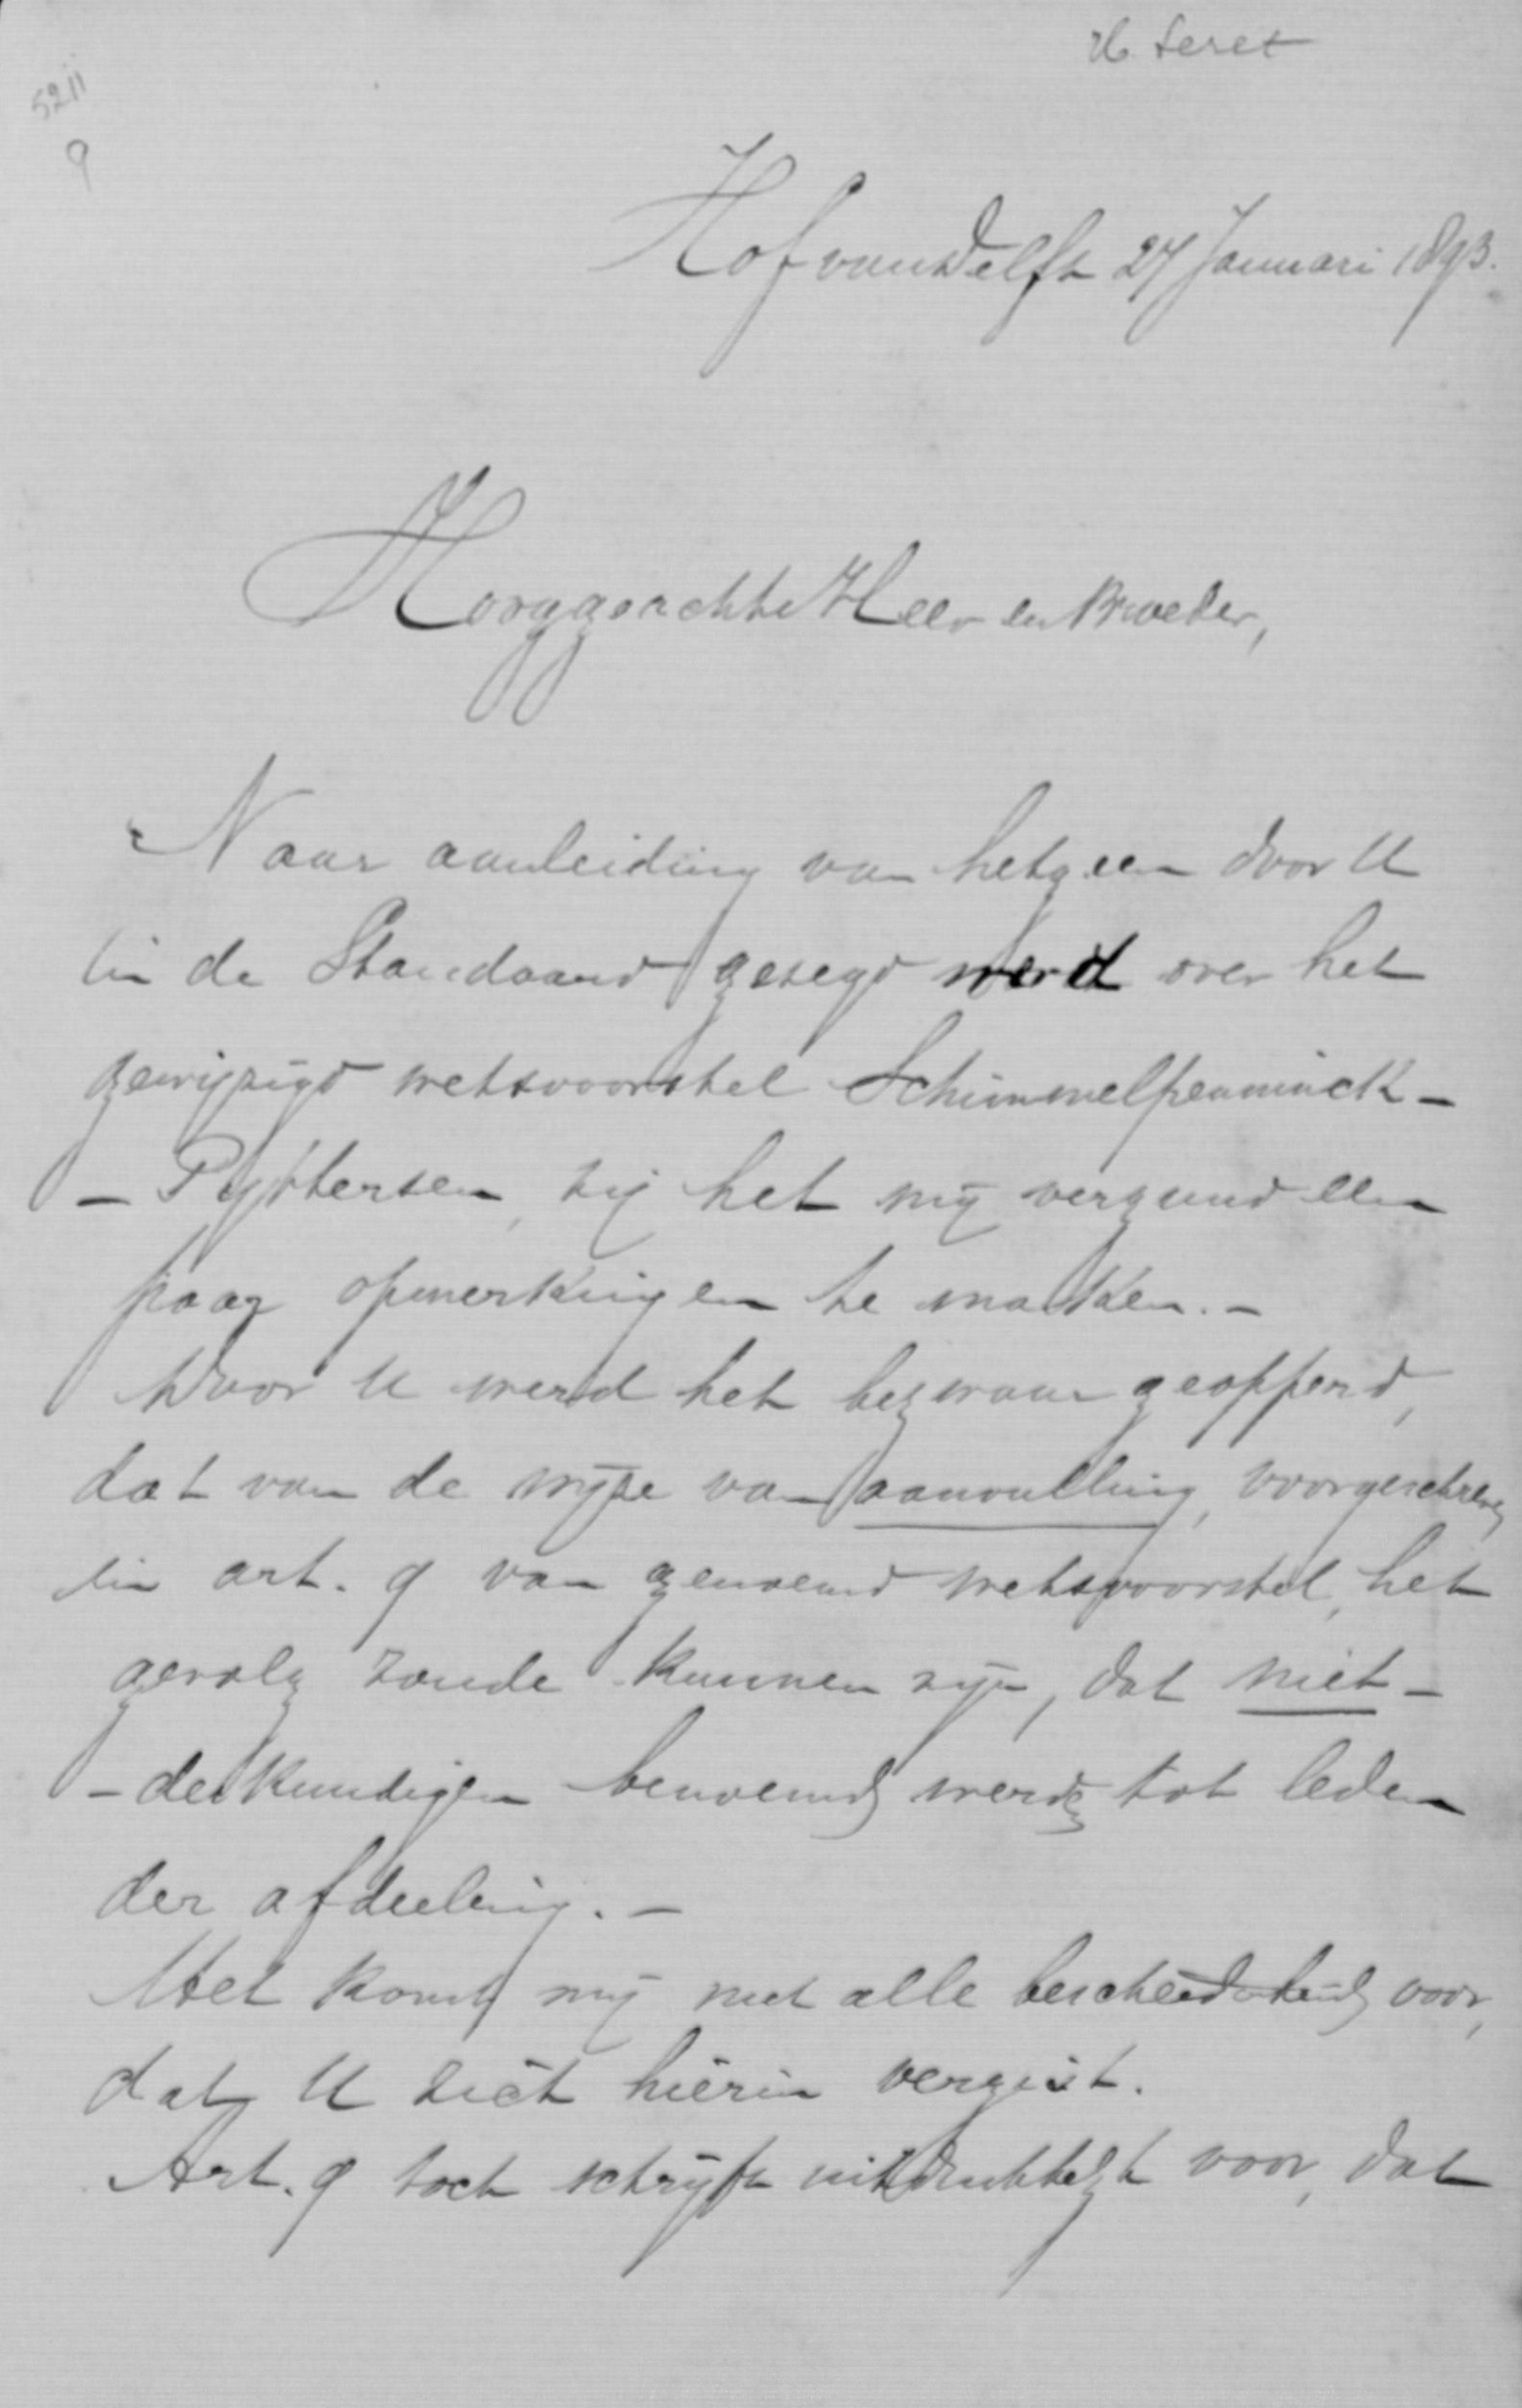 5211
9
Hof van Delft 27 Januari 1893.
Hooggeachte Heer en Broeder,
Naar aanleiding van hetgeen door U
in de Standaard gezegd werd over het
gewijzigd wetsvoorstel Schimmelpenninck -
- Pyttersen, zij het mij vergund een
paar opmerkingen te maken. -
Door U werd het bezwaar geopperd,
dat van de wijze van aanvulling, voorgeschreven
in art. 9 van genoemd wetsvoorstel, het
gevolg zoude kunnen zijn, dat niet -
- deskundigen benoemd werden tot leden
der afdeeling. -
Het komt mij met alle bescheidenheid voor,
dat U zich hierin vergist.
Art. 9 toch schrijft uitdrukkelijk voor, dat